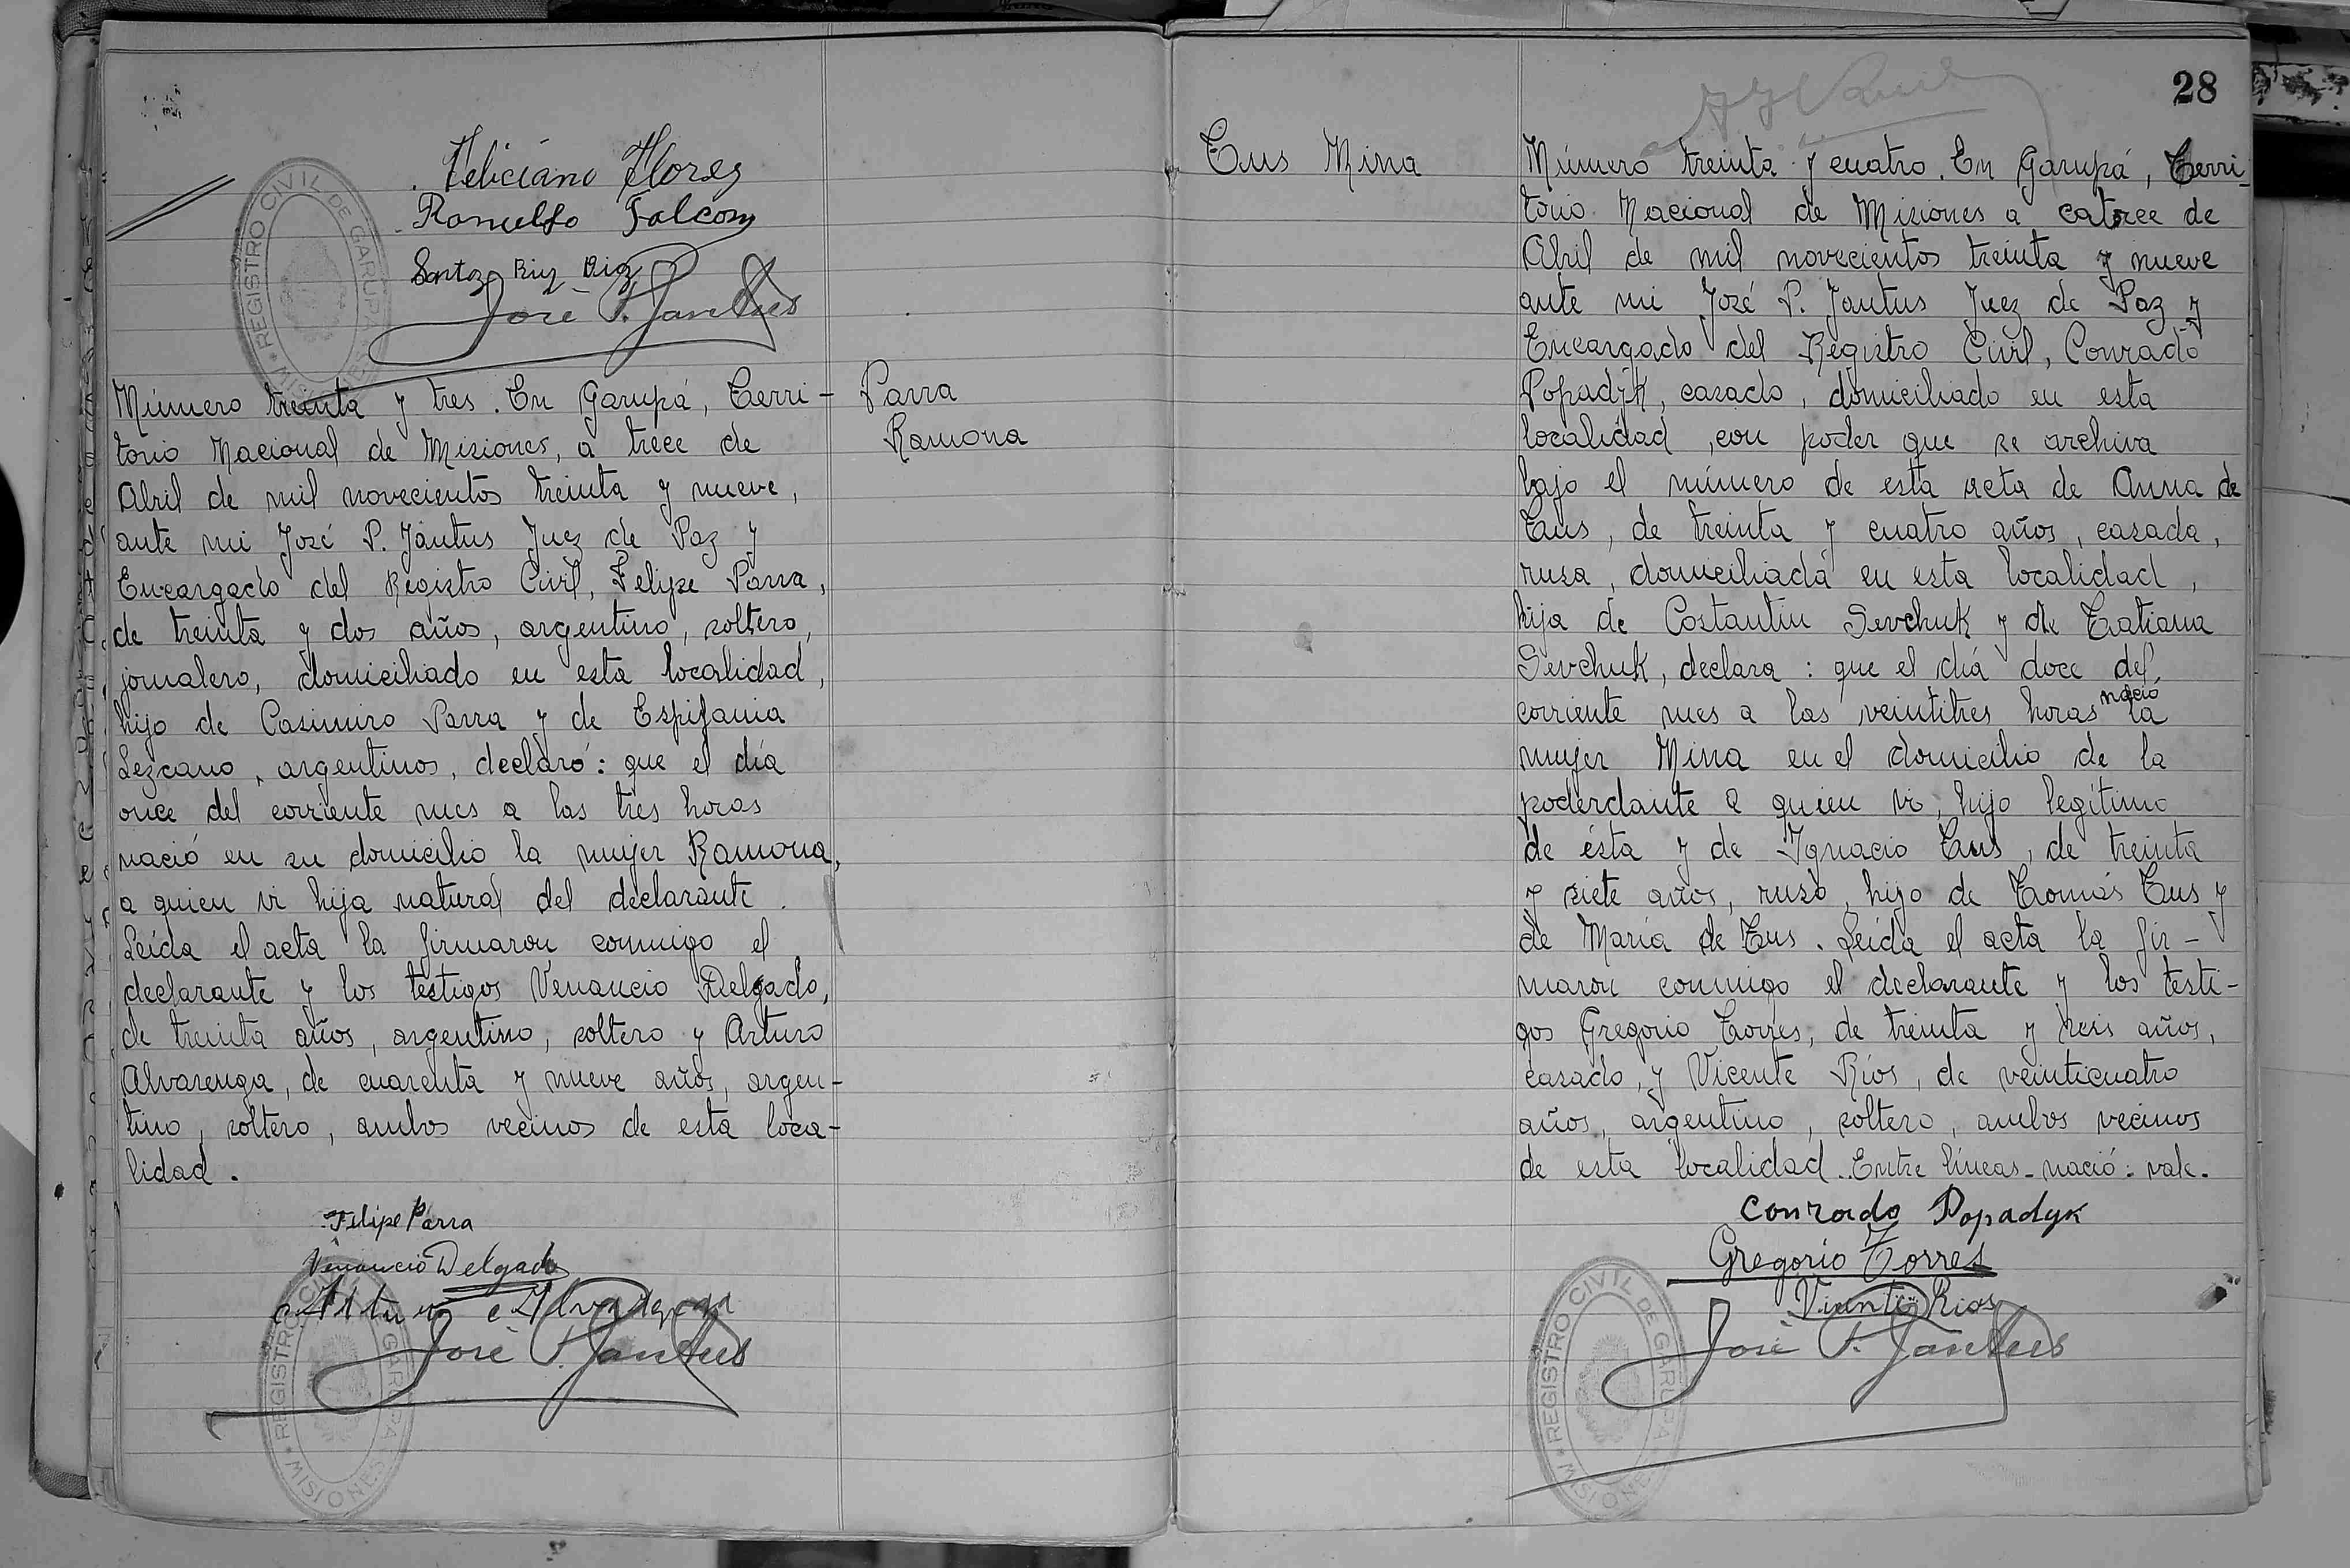 Feliciano Flores
Romulfo Falcom
Santoz Ruiz Diaz
José P. Jantus
REGISTRO CIVIL DE GARUPA
MISIONES
Número treinta y tres. En Garupá, Terri-
torio Nacional de Misiones, a trece de
Abril de mil novecientos treinta y nueve,
ante mi José P. Jantus Juez de Paz y
Encargado del Registro Civil, Felipe Parra,
de treinta y dos años, argentino, soltero,
jornalero, domiciliado en esta localidad,
hijo de Casimiro Parra y de Espifania
Lezcano, argentinos, declaró: que el día
once del corriente mes a las tres horas
nació en su domicilio la mujer Ramona,
a quien vi hija natural del declarante.
Leída el acta la firmaron conmigo el
declarante y los testigos Venancio Delgado,
de treinta años, argentino, soltero y Arturo
Alvarenga, de cuarenta y nueve años, argen-
tino, soltero, ambos vecinos de esta loca-
lidad.
Parra
Ramona
Felipe Parra
Venancio Delgado
Arturo Alvarenga
José P. Jantus
REGISTRO CIVIL DE GARUPA
MISIONES
28
Tus Mina
Número treinta y cuatro. En Garupá, Terri-
torio Nacional de Misiones a catorce de
Abril de mil novecientos treinta y nueve
ante mi José P. Jantus Juez de Paz y
Encargado del Registro Civil, Conrado
Popadyk, casado, domiciliado en esta
localidad, con poder que se archiva
bajo el número de esta acta de Anna de
Tus, de treinta y cuatro años, casada,
rusa, domiciliada en esta localidad,
hija de Costantin Sevchuk y de Tatiana
Sevchuk, declara: que el día doce del
corriente mes a las veintitres horas nació la
mujer Mina en el domicilio de la
poderdante a quien vi, hijo legítimo
de ésta y de Ignacio Tus, de treinta
y siete años, ruso, hijo de Tomás Tus y
de María de Tus. Leída el acta la fir-
maron conmigo el declarante y los testi-
gos Gregorio Torres, de treinta y seis años,
casado, y Vicente Ríos, de veinticuatro
años, argentino, soltero, ambos vecinos
de esta localidad. Entre líneas - nació: vale.
Conrado Popadyk
Gregorio Torres
Vicente Rios
José P. Jantus
REGISTRO CIVIL DE GARUPA
MISIONES